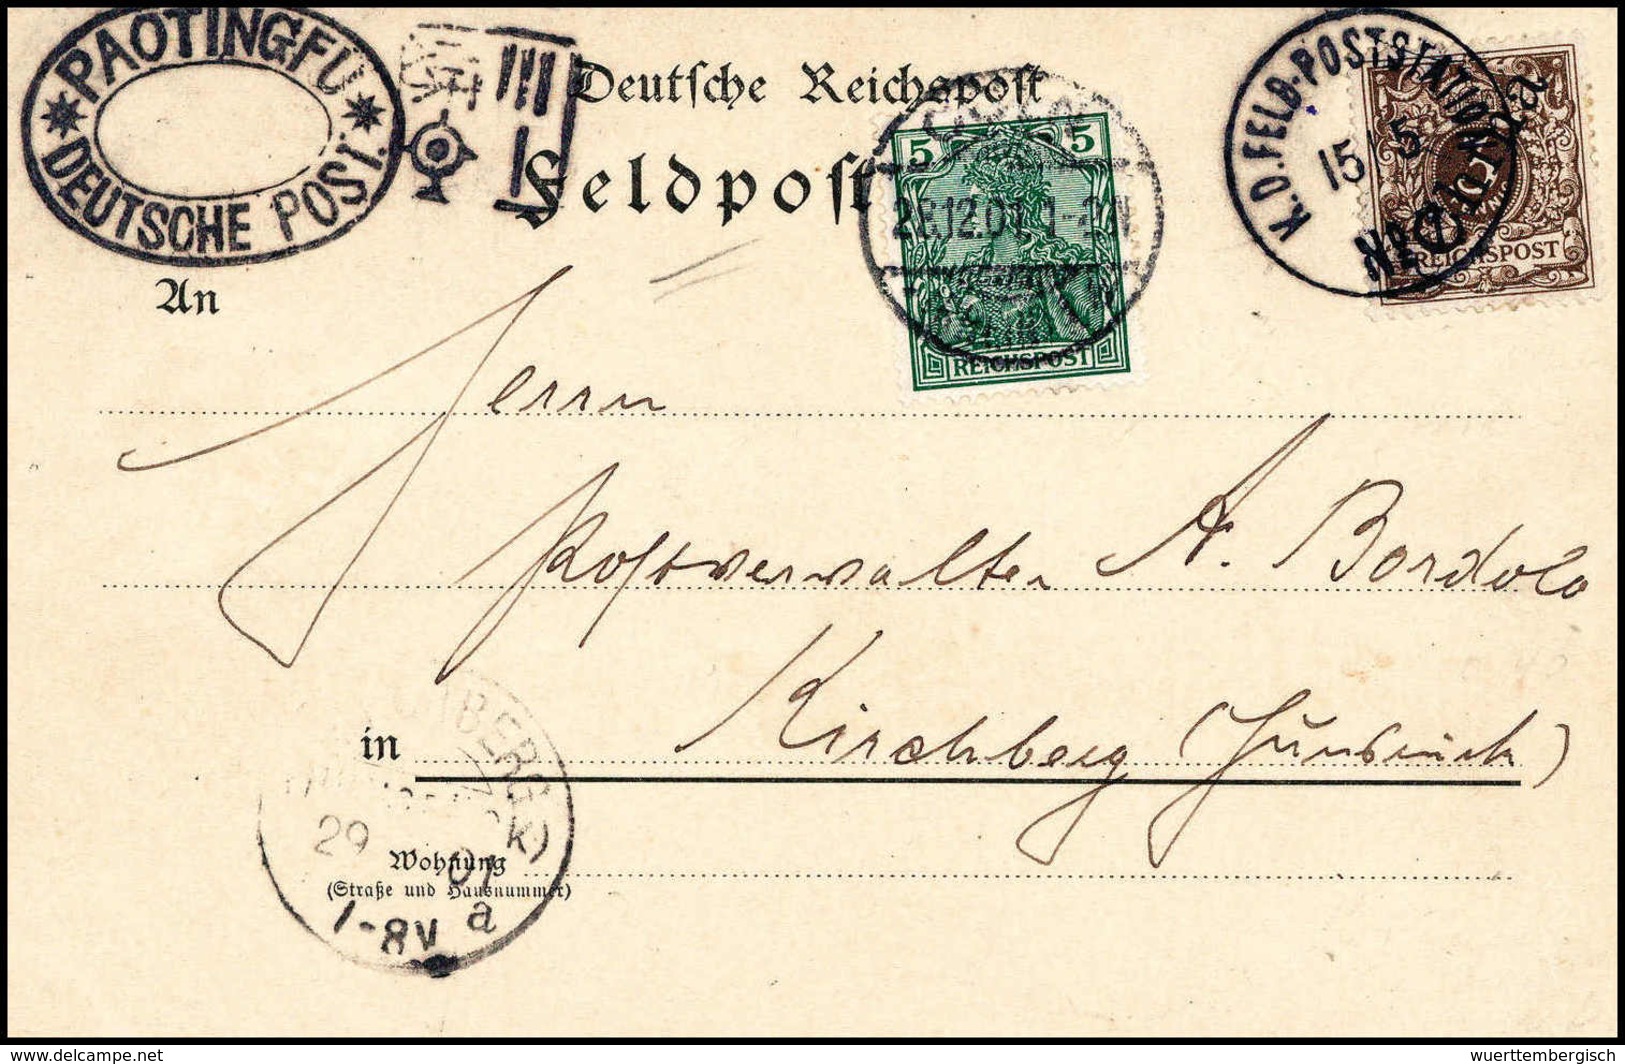 PAOTINGFU
DEUTSCHE POST.
Deutsche Reichspost
Feldpost
5 5
28.12.01. 1-2N
REICHSPOST
K.D. FELD-POSTSTATION
15 5
No 1
China
REICHSPOST
An
Herrn
Postverwalter A. Bordolo
in Kirchberg (Hunsrück)
BERG
29 01
Wohnung
(Straße und Hausnummer)
-8V a
delcampe.net
wuerttembergisch